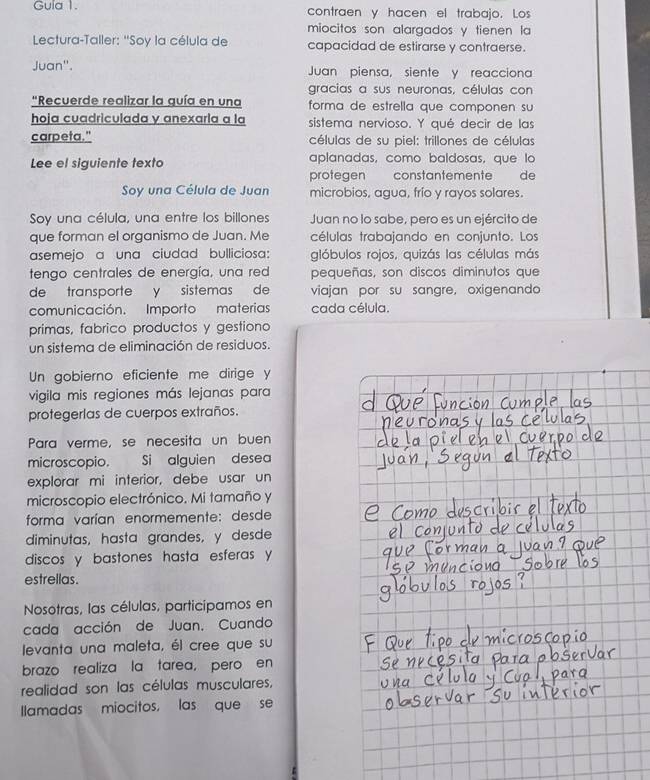 Guía 1.
Lectura-Taller: "Soy la célula de
Juan".
"Recuerde realizar la guía en una
hoja cuadriculada y anexarla a la
carpeta."
Lee el siguiente texto
Soy una Célula de Juan
Soy una célula, una entre los billones
que forman el organismo de Juan. Me
asemejo a una ciudad bulliciosa:
tengo centrales de energía, una red
de transporte y sistemas de
comunicación. Importo materias
primas, fabrico productos y gestiono
un sistema de eliminación de residuos.
Un gobierno eficiente me dirige y
vigila mis regiones más lejanas para
protegerlas de cuerpos extraños.
Para verme, se necesita un buen
microscopio. Si alguien desea
explorar mi interior, debe usar un
microscopio electrónico. Mi tamaño y
forma varían enormemente: desde
diminutas, hasta grandes, y desde
discos y bastones hasta esferas y
estrellas.
Nosotras, las células, participamos en
cada acción de Juan. Cuando
levanta una maleta, él cree que su
brazo realiza la tarea, pero en
realidad son las células musculares,
llamadas miocitos, las que se
contraen y hacen el trabajo. Los
miocitos son alargados y tienen la
capacidad de estirarse y contraerse.
Juan piensa, siente y reacciona
gracias a sus neuronas, células con
forma de estrella que componen su
sistema nervioso. Y qué decir de las
células de su piel: trillones de células
aplanadas, como baldosas, que lo
protegen constantemente de
microbios, agua, frío y rayos solares.
Juan no lo sabe, pero es un ejército de
células trabajando en conjunto. Los
glóbulos rojos, quizás las células más
pequeñas, son discos diminutos que
viajan por su sangre, oxigenando
cada célula.
d Qué función cumple las
neuronas y las células
de la piel en el cuerpo de
Juan, Según el texto
e Como describir el texto
el conjunto de células
que forman a Juan? Que
se menciona sobre los
glóbulos rojos?
F Que tipo de microscopio
se necesita para observar
una célula y cual, para
observar su interior